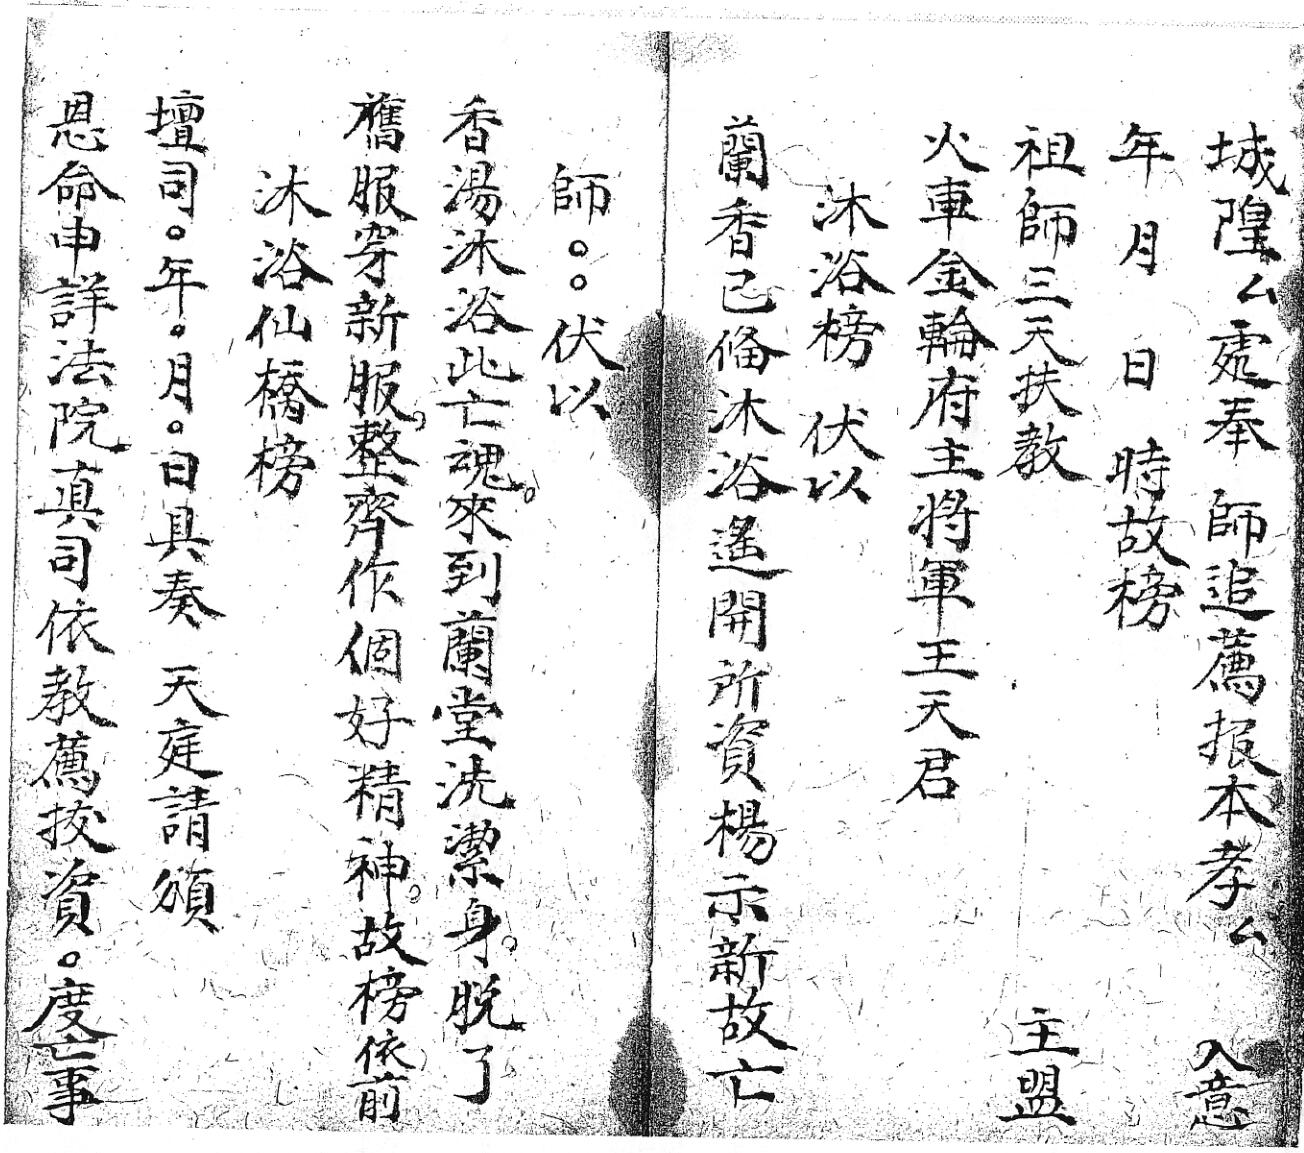 城隍厶處奉 師追薦报本孝厶 入意
年 月 日 時故榜
祖師三天扶教 主盟
火車金輪府主将軍王天君
沐浴榜 伏以
蘭香已俻沐浴遙開所資楊示新故亡
師〇〇伏以
香湯沐浴此亡魂。來到蘭堂洗潔身。脱了
舊服穿新服。整齊作個好精神。故榜依前
沐浴仙橋榜
壇司〇年〇月〇日具奏 天庭請頒
恩命申詳法院真司依教薦拔資〇度亡事